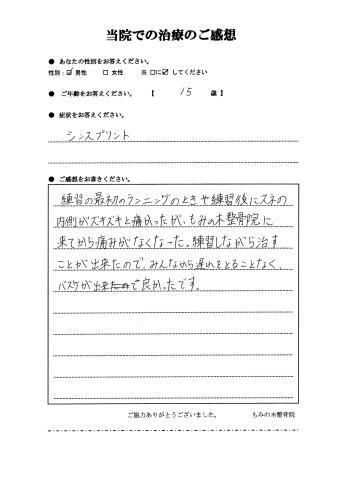 当院での治療のご感想
● あなたの性別をお答えください。
性別：☑ 男性　□ 女性　※ □に☑ してください
● ご年齢をお答えください。　【　15　歳 】
● 症状をお答えください。
シンスプリント
● ご感想をお書きください。
練習の最初のランニングのときや練習後にスネの
内側がズキズキと痛かったが、もみの木整骨院に
来てから痛みがなくなった。練習しながら治す
ことが出来たので、みんなから遅れをとることなく、
バスケが出来たので良かったです。
ご協力ありがとうございました。　もみの木整骨院